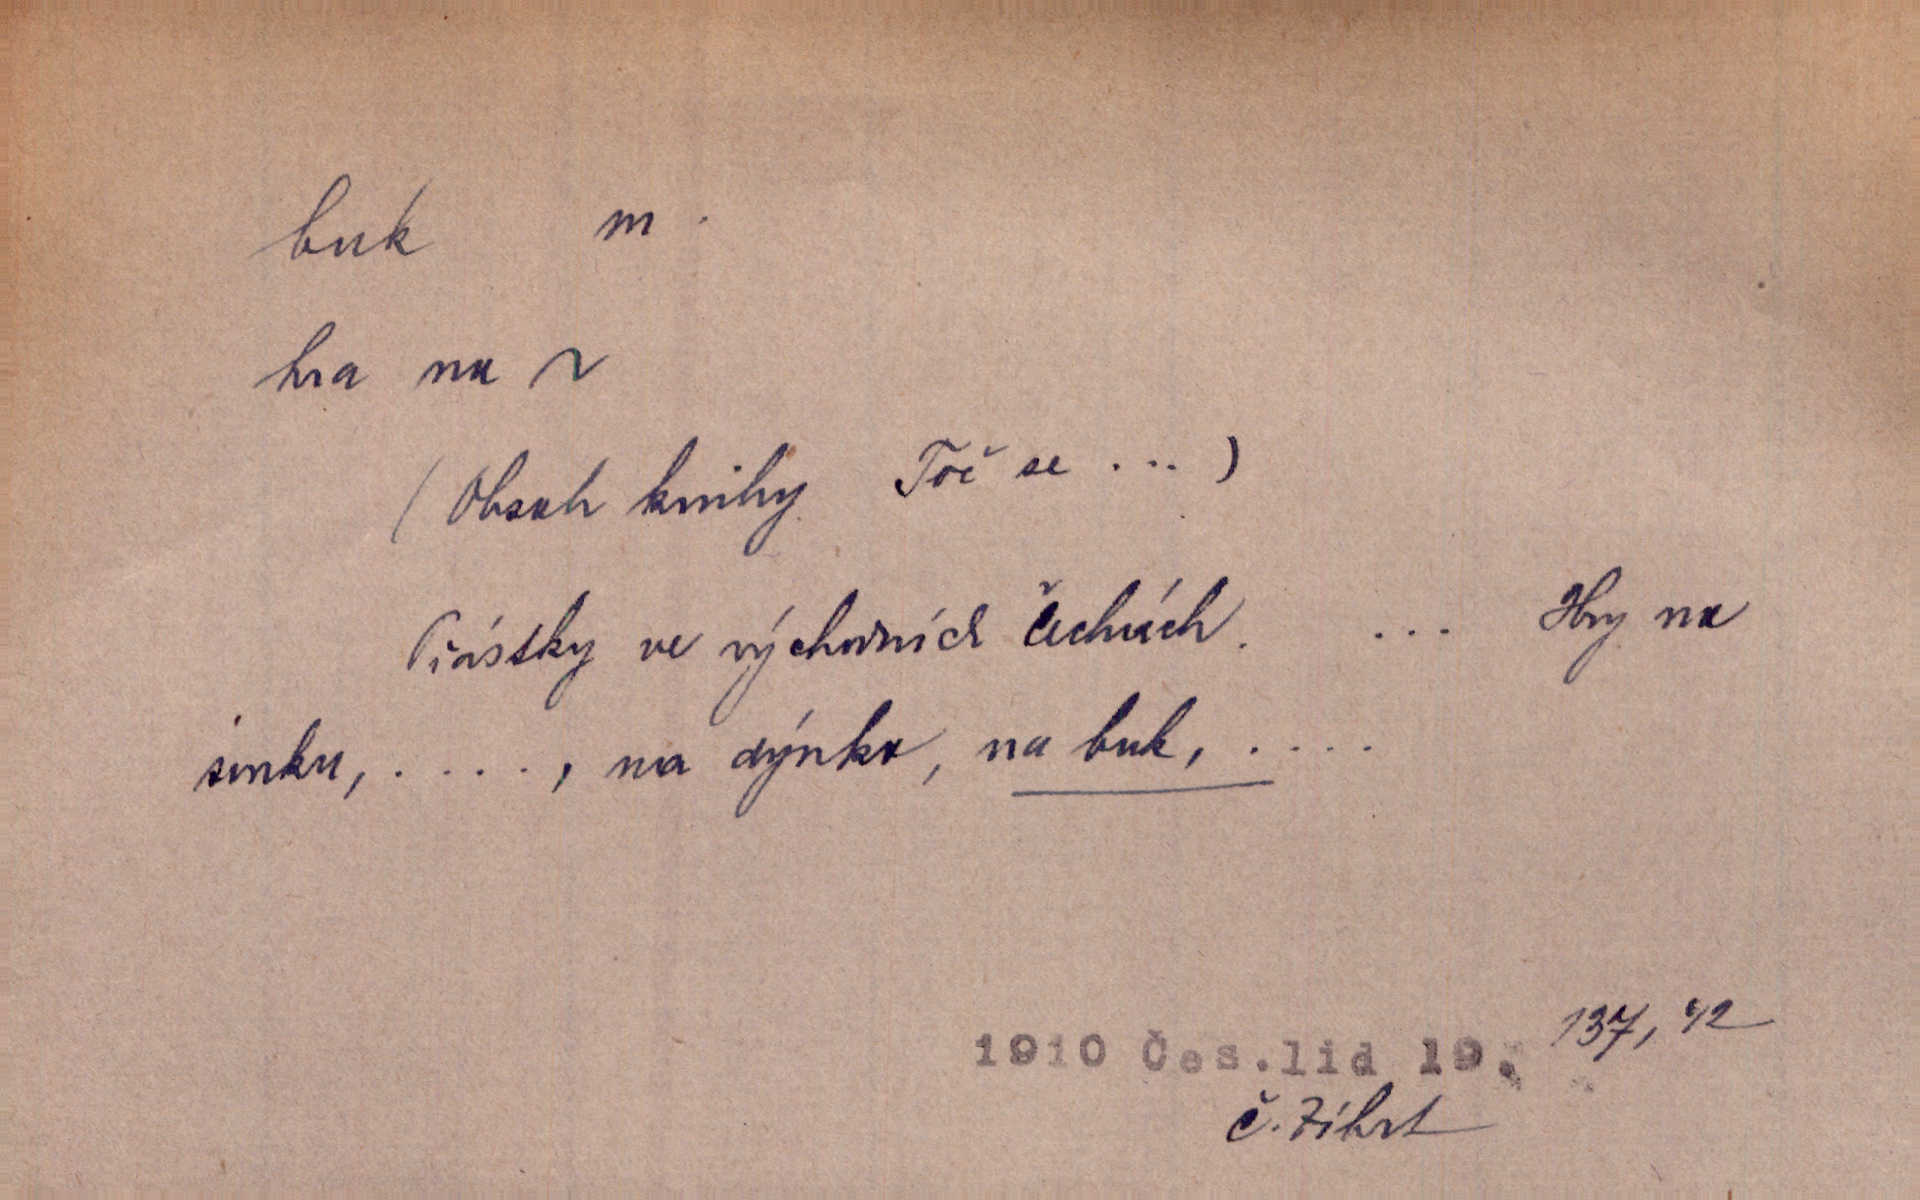 buk m.
hra na ~
(Obsah knihy Toč se ...)
Přástky ve východních Čechách. ... Hry na
sinku, . . . ., na dýnka, na buk, . . . .
1910 Čes.lid 19. 137, 42
Č. Zíbrt